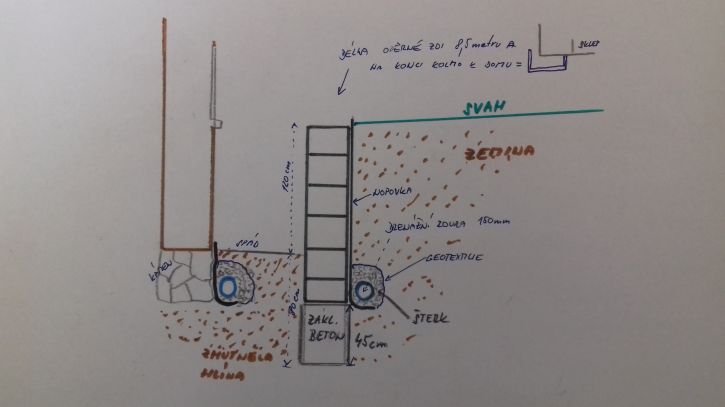 DÉLKA OPĚRNÉ ZDI 8,5 metru A
NA KONCI KOLMO K DOMU =
SKLEP
SVAH
ZEMINA
120 cm
NOPOVKA
DRENÁŽNÍ ROURA 150mm
GEOTEXTILIE
SPÁD
KÁMEN
80 cm
ZÁKL.
BETON
45cm
ŠTĚRK
ZHUTNĚLÁ
HLÍNA